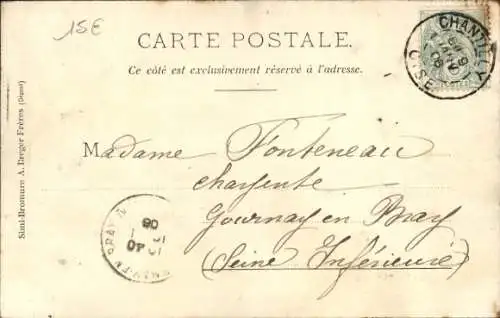 15€
CARTE POSTALE.
Ce côté est exclusivement réservé à l'adresse.
CHANTILLY
OISE
Simi-Bromure A. Breger Frères (Déposé)
Madame Fonteneau
charpente
Gournay en Bray
(Seine Inférieure)